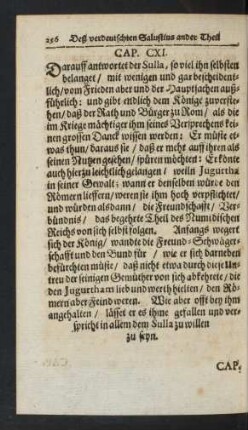 256 Deß verdeutschten Salustius ander Theil
CAP. CXI.
Darauff antwortet der Sulla, so viel ihn selbsten
belanget / mit wenigen und gar bescheident-
lich / vom Frieden aber und der Hauptsachen auß-
führlich: und gibt endlich dem Könige zuverste-
hen / daß der Rath und Bürger zu Rom / als die
im Kriege mächtiger ihm seines Versprechens kei-
nen grossen Danck wissen werden: Er müste et-
was thun / darauß sie / daß er mehr auff ihren als
seinen Nutzen gesehen / spüren möchten: Er könte
auch hierzu leichtlich gelangen / weiln Jugurtha
in seiner Gewalt; wann er denselben würde den
Römern lieffern / weren sie ihm hoch verpflichtet /
und würden alsdann / die Freundschafft / Ver-
bündnis / das begehrte Theil des Numidischen
Reichs von sich selbst folgen. Anfangs wegert
sich der König / wandte die Freund-Schwäger-
schafft und den Bund für / wie er sich darneben
befürchten müste / daß nicht etwa durch diese Un-
treu der seinigen Gemüther von sich abkehrete / die
den Jugurtham lieb und werth hielten / den Rö-
mern aber Feind weren. Wie aber offt bey ihm
angehalten / lässet er es ihme gefallen und ver-
spricht in allem dem Sulla zu willen
zu seyn.
CAP.